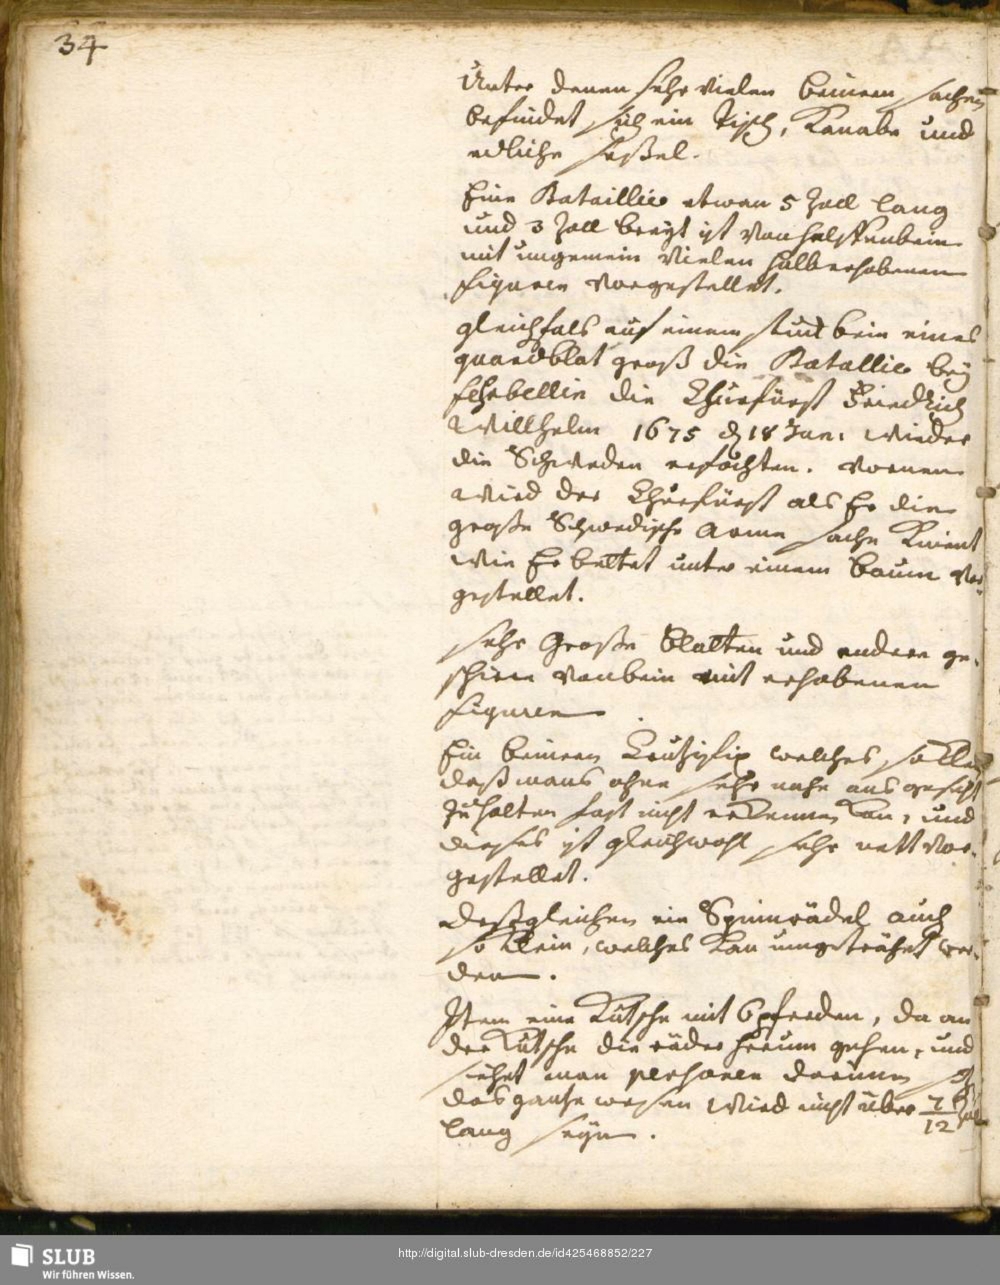 34
Unter denen sehr vielen beinern sachen
befindet sich ein Tisch, Kanabe und
etliche seßel.
Eine Bataillie etwan 5 Zoll lang
und 3 Zoll breyt ist von helffenbein
mit ungemein vielen halb erhobenen
figuren vorgestellet.
gleichfals auf einem stuck bein eines
quardblat groß die Batallie bey
fehrbellin die Churfürst Friedrich
Willhelm 1675 d 18 Jun: wieder
die Schweden erfochten. vornen
wird der Churfürst als Er die
große Schwedische Arme sahe
wie Er bettet unter einem baum vor
gestellet.
sehr Große Blatten und andere ge-
schirr von bein mit erhobenen
figuren
Ein beinern Cruzifix welches so klein
daß mans ohne sehr nahe ans gesicht
zu halten fast nicht erkennen kan, und
dieses ist gleichwohl sehr nett vor-
gestellet.
deßgleichen ein Spinrädel auch
so klein, welches kan umgeträhet wer-
den.
Item eine Kutsche mit 6 pferden, da an
der Kutsche die räder herum gehen, und
siehet man persohnen darinnen
das gantze wesen wird nicht über 7/12 Zoll
lang seyn.
SLUB
Wir führen Wissen.
http://digital.slub-dresden.de/id425468852/227